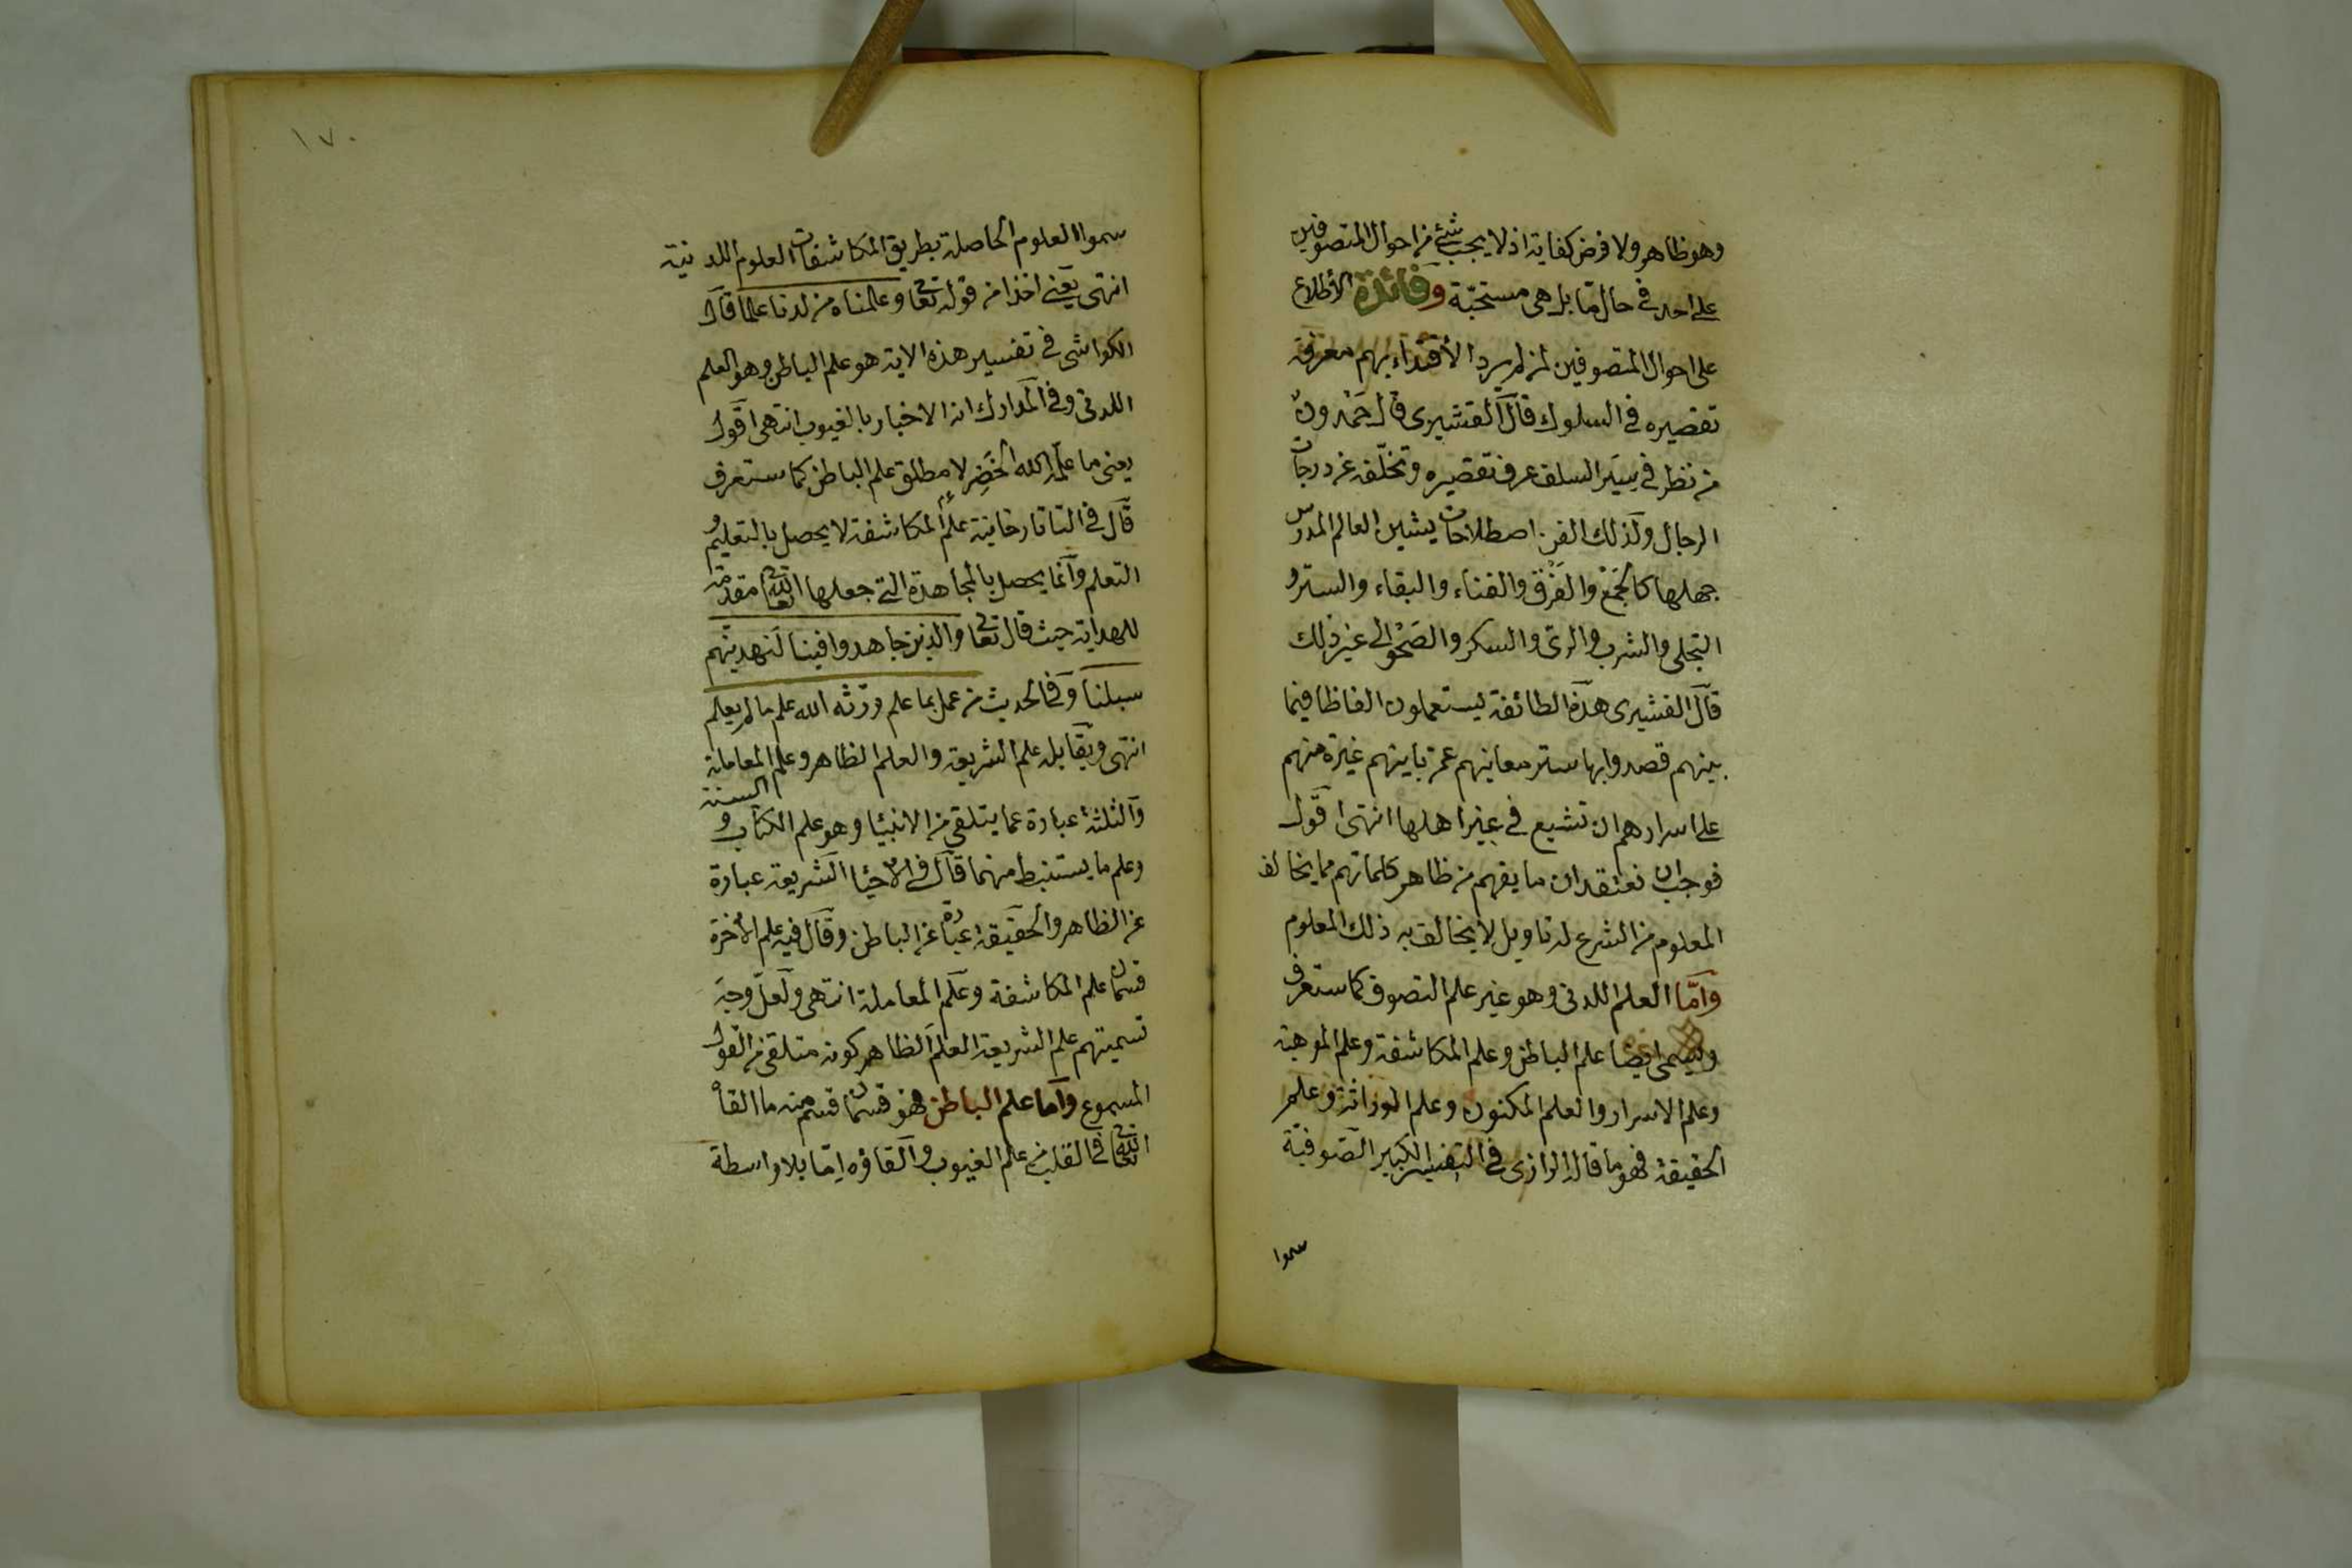 وهو ظاهر ولا فرض كفاية اذ لا يجب شئ من احوال المتصوفين
على احد في حال ما بل هى مستحبّة وفائدة الأطلاع
على احوال المتصوفين لمن لم يرد الأقتداء بهم معرفة
تقصيره في السلوك قال القشيرى قال حَمْدون
من نظر في سِيَر السلف عرف تقصيره وتخلّفه عن درجات
الرجال ولذلك الفن اصطلاحات يشين العالم المدرس
جهلها كالجَمْع والفَرْق والفناء والبقاء والستر و
التجلى والشرب والرىّ والسكر والصَحْو الى غير ذلك
قال القشيرى هذه الطائفة يستعملون الفاظا فيما
بينهم قصدوا بها ستر معانيهم عمن باينهم غيرة منهم
على اسرارهم ان تشيع في غير اهلها انتهى اقول
فوجب ان نعتقد ان ما يفهم من ظاهر كلماتهم مما يخالف
المعلوم من الشرع له تاويل لا يخالف به ذلك المعلوم
وامّا العلم اللدنى وهو غير علم التصوف كما ستعرف
ويسمى ايضا علم الباطن وعلم المكاشفة وعلم الموهبة
وعلم الاسرار والعلم المكنون وعلم الوراثة وعلم
الحقيقة فهو ما قال الرازى في التفسير الكبير الصّوفيّة
سموا
١٧٠
سموا العلوم الحاصلة بطريق المكاشفات العلوم اللدنية
انتهى يعنى اخذا من قوله تعا وعلمناه من لدنا علما قال
الكواشى في تفسير هذه الاية هو علم الباطن وهو العلم
اللدنى وفي المدارك انه الاخبار بالغيوب انتهى اقول
يعنى ما علّمه الله الخَضِر لا مطلق علم الباطن كما ستعرف
قال في التاتارخانية علم المكاشفة لا يحصل بالتعليم و
التعلم وانما يحصل بالمجاهدة التي جعلها الله تعا مقدمة
للهداية حيث قال تعا والذين جاهدوا فينا لَنهدينّهم
سبلنا وفي الحديث من عمل بما علم ورّثه الله علم ما لم يعلم
انتهى ويقابله علم الشريعة والعلم الظاهر وعلم المعاملة
والثلثة عبارة عما يتلقى من الانبيا وهو علم الكتاب و السنة
وعلم ما يستنبط منهما قال في الاحيا الشريعة عبارة
عن الظاهر والحقيقة عبارة عن الباطن وقال فيه علم الأخرة
قسمان علم المكاشفة وعلم المعاملة انتهى ولعلّ وجه
تسميتهم علم الشريعة العلم الظاهر كونه متلقى من القول
المسموع وأما علم الباطن فهو قسمان قسم منه ما القاه
الله تعا في القلب من علم الغيوب والقاؤه امّا بلا واسطة